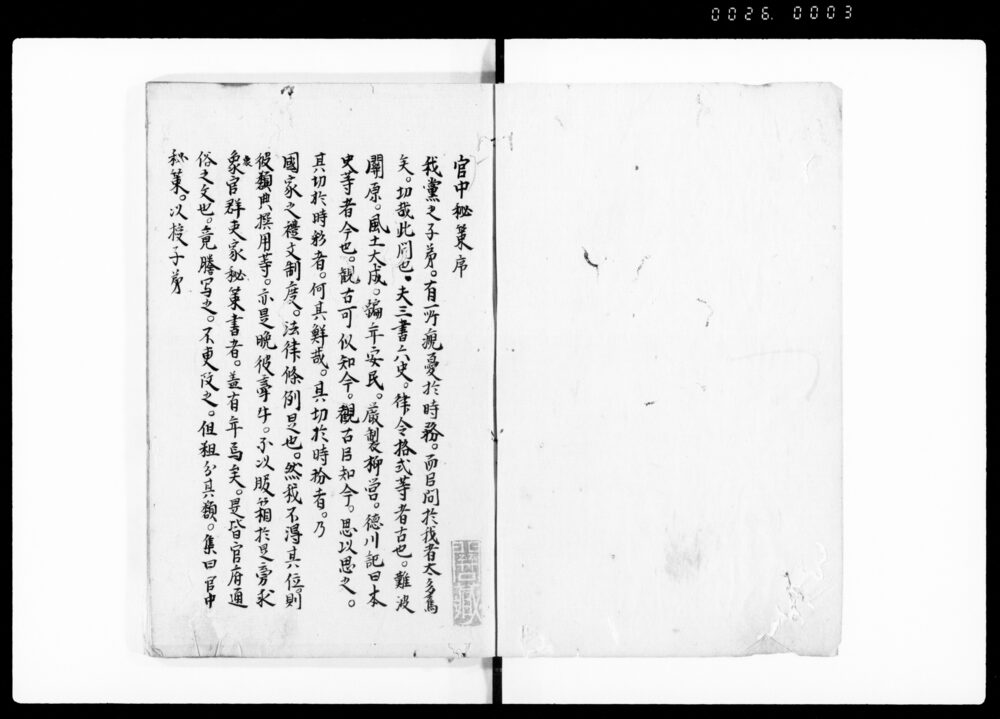 0026. 0003
官中秘策序
我黨之子弟。有一所窺憂於時務。而目問於我者太多焉
矣。切哉此問也。夫三書六史。律令格式等者古也。難波
關原。風土大成。編年安民。嚴製柳営。徳川記日本
史等者今也。観古可以知今。観古目知今。思以思之。
其切於時務者。何其鮮哉。具切於時務者。乃
國家之禮文制度。法律條例是也。然我不得其位。則
彼類典撰用等。亦是晩彼牽牛。不以服箱於是旁求
象官群吏家秘策書者。盖有年焉矣。是皆官府通
俗之文也。竟謄写之。不更改之。但粗分其類。集曰官中
秘策。以授子弟